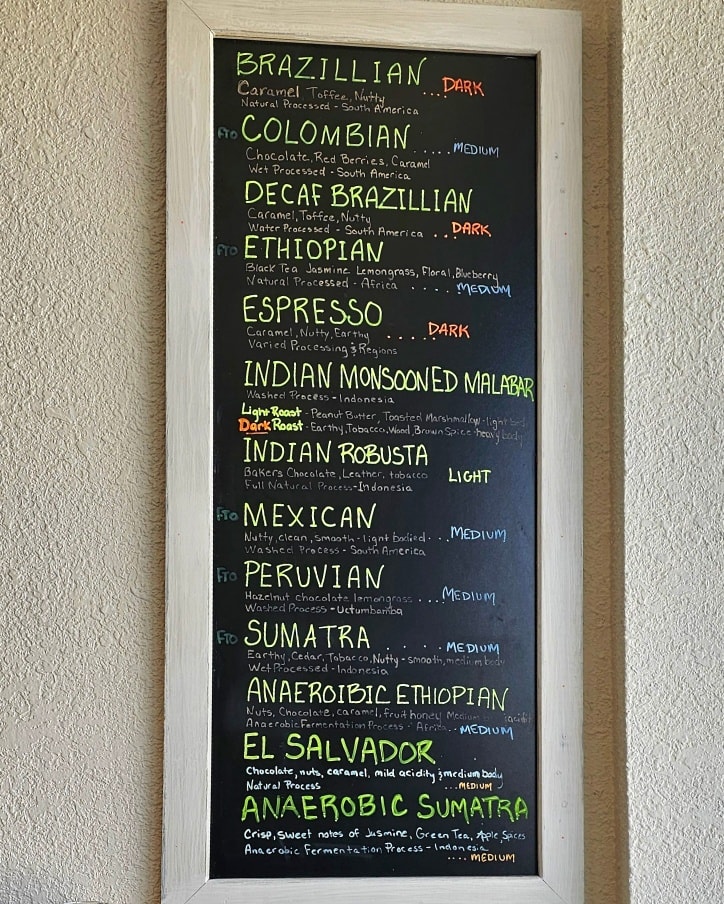 BRAZILLIAN .... DARK
Caramel Toffee, Nutty
Natural Processed - South America
FTO COLOMBIAN ..... MEDIUM
Chocolate, Red Berries, Caramel
Wet Processed - South America
DECAF BRAZILLIAN
Caramel, Toffee, Nutty
Water Processed - South America ... DARK
FTO ETHIOPIAN
Black Tea Jasmine Lemongrass, Floral, Blueberry
Natural Processed - Africa ..... MEDIUM
ESPRESSO
Caramel, Nutty, Earthy ..... DARK
Varied Processing & Regions
INDIAN MONSOONED MALABAR
Washed Process - Indonesia
Light Roast - Peanut Butter, Toasted Marshmallow - light
Dark Roast - Earthy, Tobacco, Wood, Brown Spice - heavy body
INDIAN ROBUSTA
Bakers Chocolate, Leather, tobacco LIGHT
Full Natural Process - Indonesia
FTO MEXICAN
Nutty, clean, smooth - light bodied ... MEDIUM
Washed Process - South America
FTO PERUVIAN
Hazelnut chocolate lemongrass .... MEDIUM
Washed Process - Uctumbamba
FTO SUMATRA ..... MEDIUM
Earthy, Cedar, Tobacco, Nutty - smooth, medium body
Wet Processed - Indonesia
ANAEROIBIC ETHIOPIAN
Nuts, Chocolate, caramel, fruit honey Medium
Anaerobic Fermentation Process - Africa .. MEDIUM
EL SALVADOR
Chocolate, nuts, caramel, mild acidity & medium body
Natural Process ....MEDIUM
ANAEROBIC SUMATRA
Crisp, sweet notes of Jasmine, Green Tea, Apple, Spices
Anaerobic Fermentation Process - Indonesia
.... MEDIUM